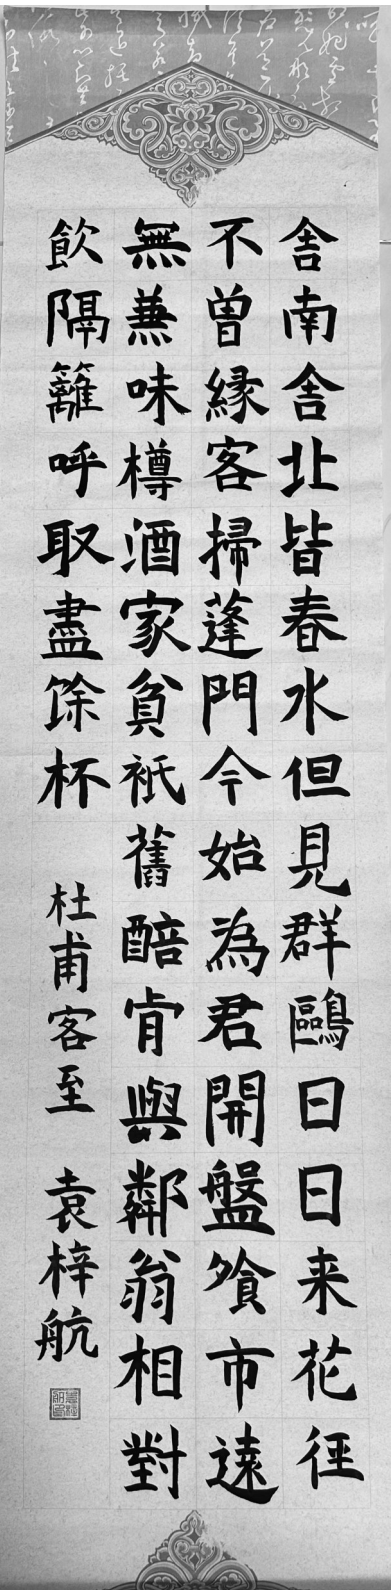 舍南舍北皆春水但見群鷗日日来花徑
不曾緣客掃蓬門今始為君開盤飧市遠
無兼味樽酒家貧衹舊醅肯與鄰翁相對
飲隔籬呼取盡馀杯
杜甫客至 袁梓航